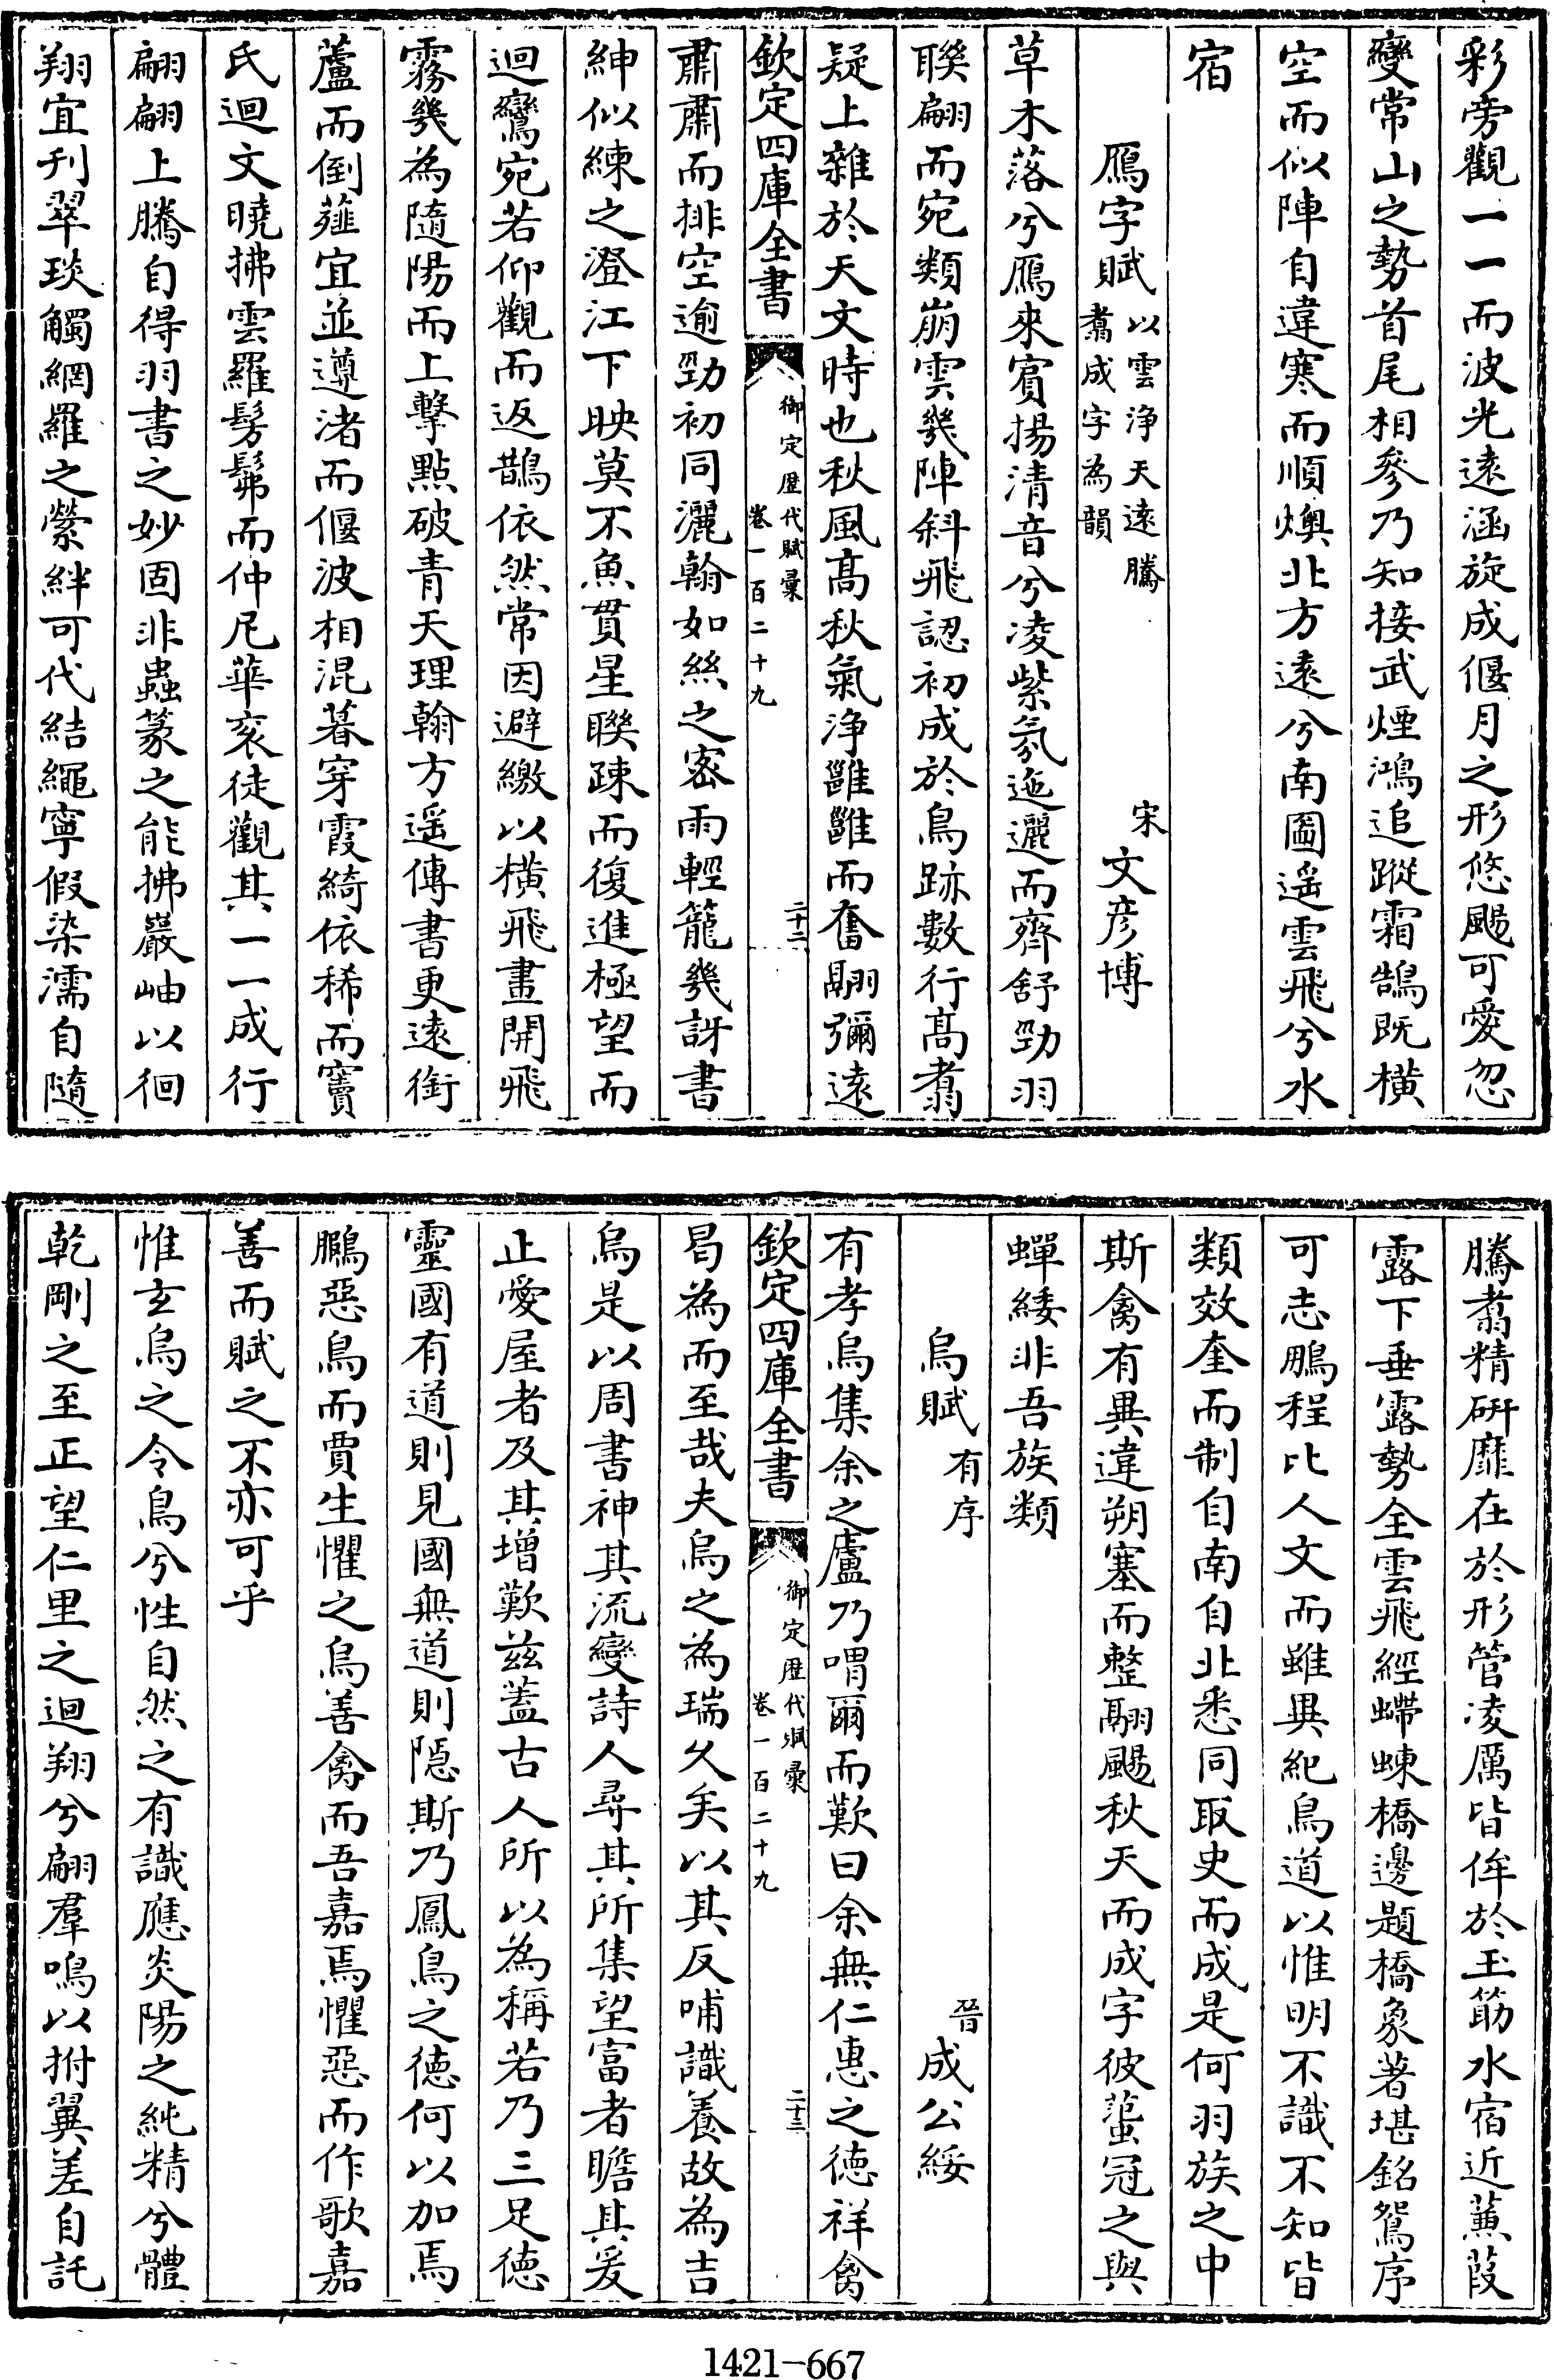 彩旁觀一一而波光遠涵旋成偃月之形悠颺可愛忽
變常山之勢首尾相參乃知接武煙鴻追蹤霜鵠既橫
空而似陣自違寒而順燠北方遠兮南圖遙雲飛兮水
宿
鴈字賦以雲淨天遠騰翥成字為韻 宋文彥博
草木落兮鴈來賓揚清音兮凌紫氛迤邐而齊舒勁羽
聨翩而宛類崩雲幾陣斜飛認初成於鳥跡數行髙翥
疑上雜於天文時也秋風髙秋氣浄雝雝而奮翮彌遠
欽定四庫全書
御定歴代賦彙
卷一百二十九
二十二
肅肅而排空逾勁初同灑翰如絲之密雨輕籠幾訝書
紳似練之澄江下映莫不魚貫星聨疎而復進極望而
迴鸞宛若仰觀而返鵲依然常因避繳以橫飛畫開飛
霧幾為隨陽而上擊點破青天理翰方遥傳書更遠銜
蘆而倒薤宜並遵渚而偃波相混暮穿霞綺依稀而竇
氏迴文曉拂雲羅髣髴而仲尼華衮徒觀其一一成行
翩翩上騰自得羽書之妙固非蟲篆之能拂巖岫以徊
翔宜刋翠琰觸網羅之縈絆可代結繩寧假染濡自隨
騰翥精研靡在於形管凌厲皆侔於玉筯水宿近蒹葭
露下垂露勢全雲飛經螮蝀橋邊題橋象著堪銘鴛序
可志鵬程比人文而雖異紀鳥道以惟明不識不知皆
類效奎而制自南自北悉同取史而成是何羽族之中
斯禽有異違朔塞而整翮颺秋天而成字彼蜚冠之與
蟬緌非吾族類
烏賦有序 晉成公綏
有孝烏集余之廬乃喟爾而歎曰余無仁惠之德祥禽
欽定四庫全書
御定歴代賦彙
卷一百二十九
二十三
曷為而至哉夫烏之為瑞久矣以其反哺識養故為吉
烏是以周書神其流變詩人尋其所集望富者瞻其爰
止愛屋者及其增歎茲葢古人所以為稱若乃三足德
靈國有道則見國無道則隠斯乃鳳鳥之德何以加焉
鵩惡鳥而賈生懼之烏善禽而吾嘉焉懼惡而作歌嘉
善而賦之不亦可乎
惟玄烏之令鳥兮性自然之有識應炎陽之純精兮體
乾剛之至正望仁里之迴翔兮翩羣鳴以拊翼差自託
1421-667